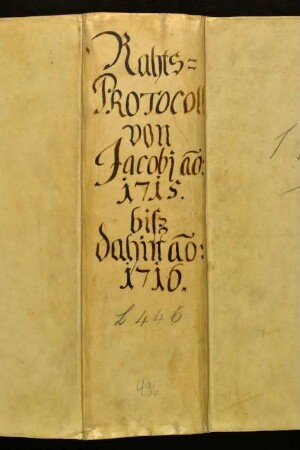 Rahts=
PROTOCOLL
von
Jacobj aō:
1715.
biß
dahin aō:
1716.
L 446